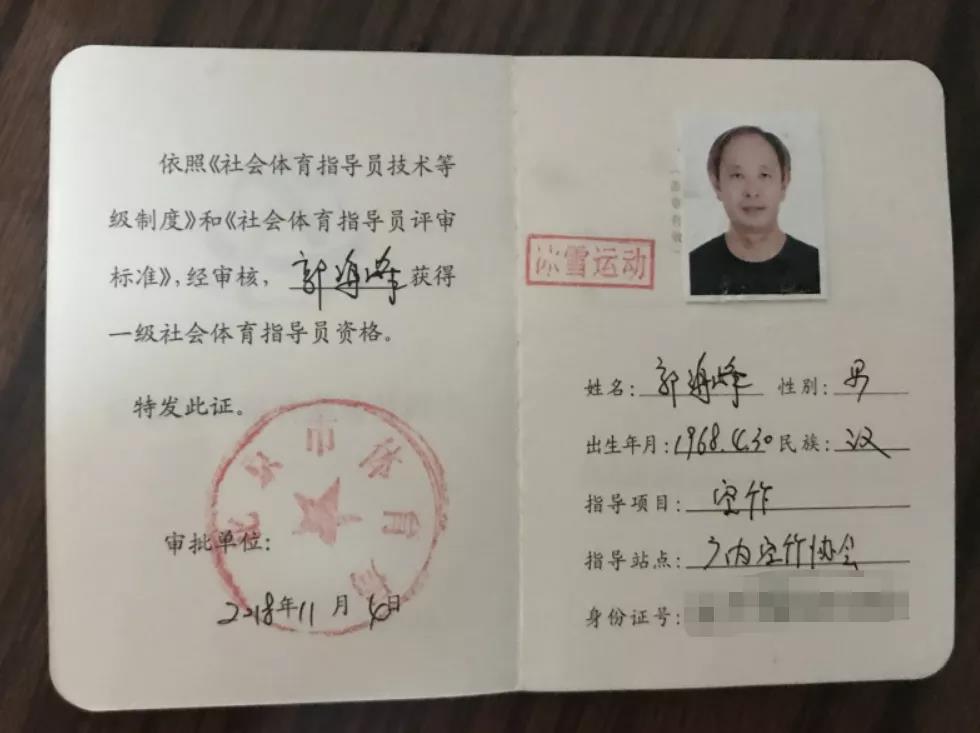 依照《社会体育指导员技术等
级制度》和《社会体育指导员评审
标准》，经审核，郭海峰获得
一级社会体育指导员资格。
特发此证。
北京市体育局
审批单位：
2018年11月4日
冰雪运动
姓名：郭海峰 性别：男
出生年月：1968.4.30 民族：汉
指导项目：空竹
指导站点：广内空竹协会
身份证号：